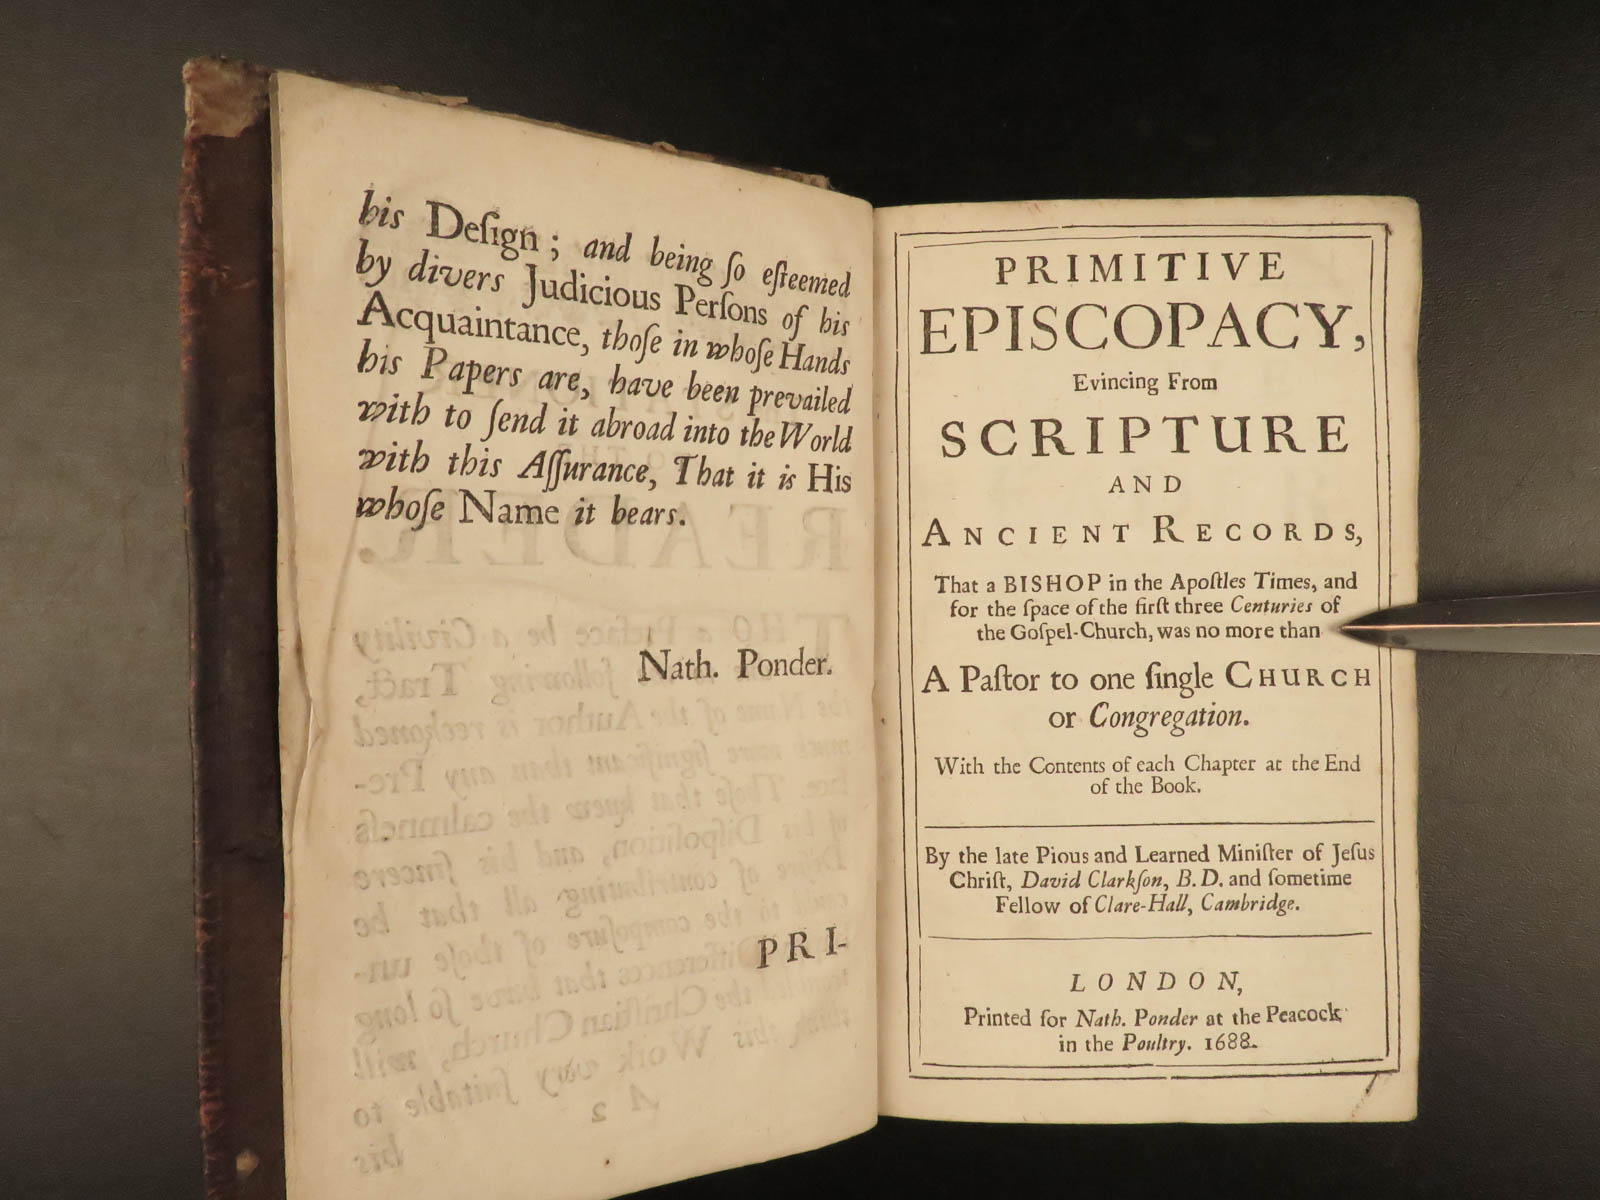 his Deſign; and being ſo eſteemed
by divers Judicious Perſons of his
Acquaintance, thoſe in whoſe Hands
his Papers are, have been prevailed
with to ſend it abroad into the World
with this Aſſurance, That it is His
whoſe Name it bears.
Nath. Ponder.
PRI-
PRIMITIVE
EPISCOPACY,
Evincing From
SCRIPTURE
AND
ANCIENT RECORDS,
That a BISHOP in the Apoſtles Times, and
for the ſpace of the firſt three Centuries of
the Goſpel-Church, was no more than
A Paſtor to one ſingle CHURCH
or Congregation.
With the Contents of each Chapter at the End
of the Book.
By the late Pious and Learned Miniſter of Jeſus
Chriſt, David Clarkſon, B.D. and ſometime
Fellow of Clare-Hall, Cambridge.
LONDON,
Printed for Nath. Ponder at the Peacock
in the Poultry. 1688.